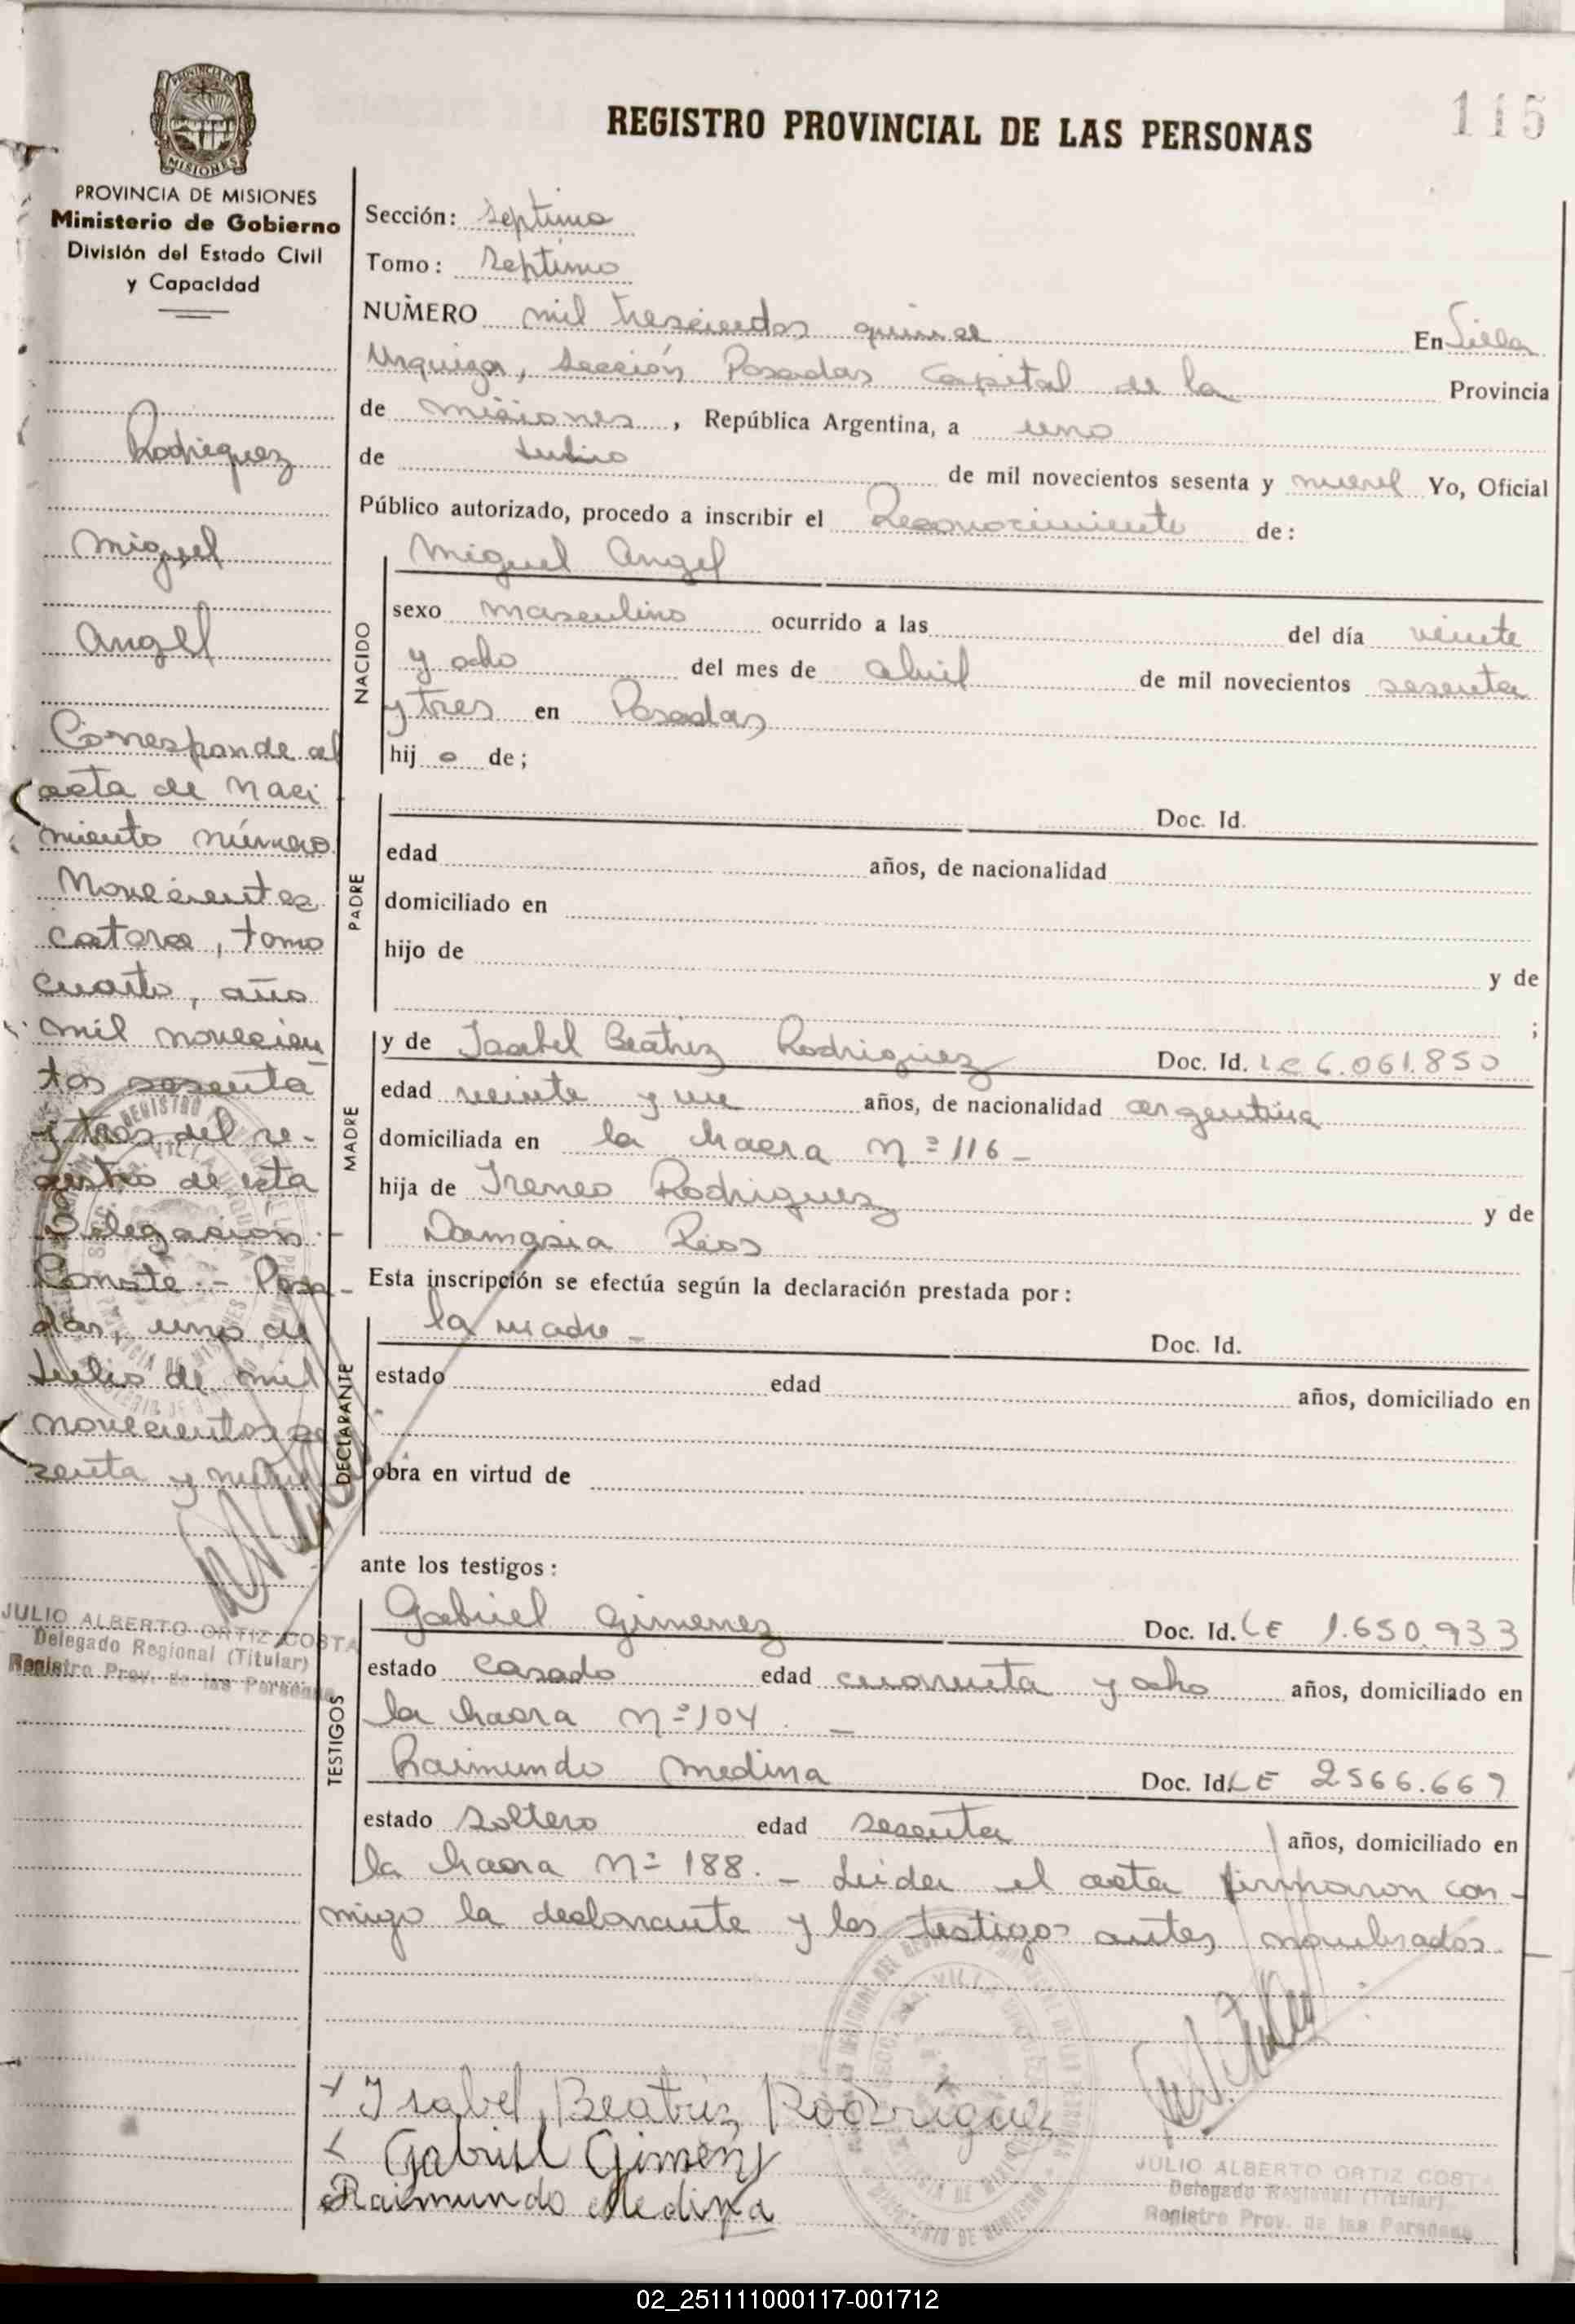 115
REGISTRO PROVINCIAL DE LAS PERSONAS
PROVINCIA DE
MISIONES
PROVINCIA DE MISIONES
Ministerio de Gobierno
División del Estado Civil
y Capacidad
Rodriguez
Miguel
Angel
Corresponde al
acta de naci
miento número
Novecientos
catorce, tomo
cuarto, año
mil novecien
tos sesenta
y tres del re-
gistro de esta
Delegación.-
Conste.- Posa-
das, uno de
Julio de mil
novecientos se
senta y nueve
JULIO ALBERTO ORTIZ COSTA
Delegado Regional (Titular)
Registro Prov. de las Personas
Sección: Septima
Tomo: Septimo
NUMERO mil trescientos quince En Villa
Urquiza, Sección Posadas Capital de la Provincia
de Misiones, República Argentina, a uno
de Julio de mil novecientos sesenta y nueve Yo, Oficial
Público autorizado, procedo a inscribir el Reconocimiento de:
NACIDO
Miguel Angel
sexo masculino ocurrido a las del día veinte
y ocho del mes de abril de mil novecientos sesenta
y tres en Posadas
hij o de;
PADRE
Doc. Id.
edad años, de nacionalidad
domiciliado en
hijo de y de
;
MADRE
y de Isabel Beatriz Rodriguez Doc. Id. LC 6.061.850
edad veinte y un años, de nacionalidad argentina
domiciliada en la chacra Nº 116 -
hija de Ireneo Rodriguez y de
Damasia Rios
Esta inscripción se efectúa según la declaración prestada por:
DECLARANTE
la madre - Doc. Id.
estado edad años, domiciliado en
obra en virtud de
ante los testigos:
TESTIGOS
Gabriel Gimenez Doc. Id. LE 1.650.933
estado casado edad cuarenta y ocho años, domiciliado en
la chacra Nº 104. -
Raimundo Medina Doc. Id. LE 2566.667
estado soltero edad sesenta años, domiciliado en
la chacra Nº 188. - Leida el acta firmaron con-
migo la declarante y los testigos antes nombrados. -
Isabel Beatriz Rodriguez
Gabriel Gimenez
Raimundo Medina
JULIO ALBERTO ORTIZ COSTA
Delegado Regional (Titular)
Registro Prov. de las Personas
02_251111000117-001712